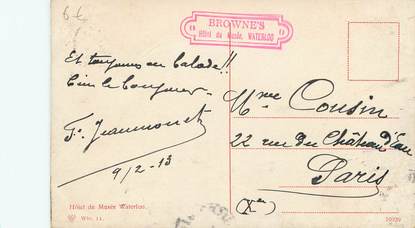 6 €
BROWNE'S
Hôtel du Musée, WATERLOO
Et toujours en balade!!
bonjour
F. Jeaumonet
9/2-13
Mme Cousin
22 rue du Château d'eau
Paris
(Xe)
Hôtel de Musée Waterloo.
Wtr. 11.